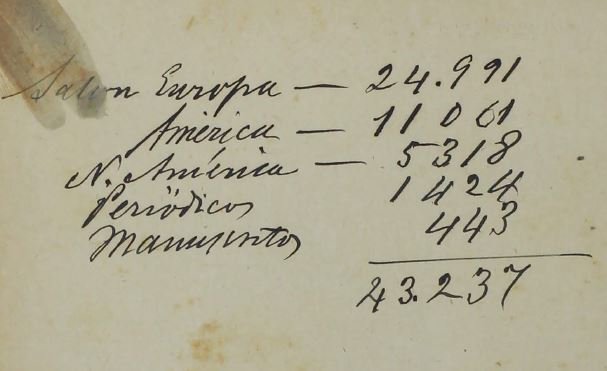 Salon Europa — 24.991
América — 11061
N. América — 5318
Periódicos 1424
Manuscritos 443
43.237